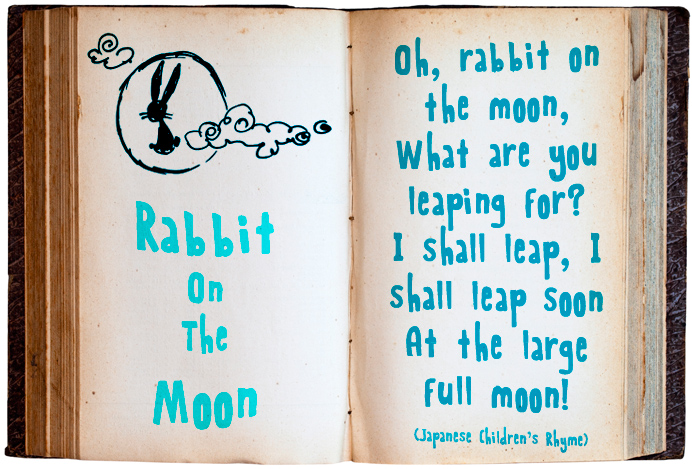 Rabbit
On
The
Moon
Oh, rabbit on
the moon,
What are you
leaping for?
I shall leap, I
shall leap soon
At the large
full moon!
(Japanese Children's Rhyme)